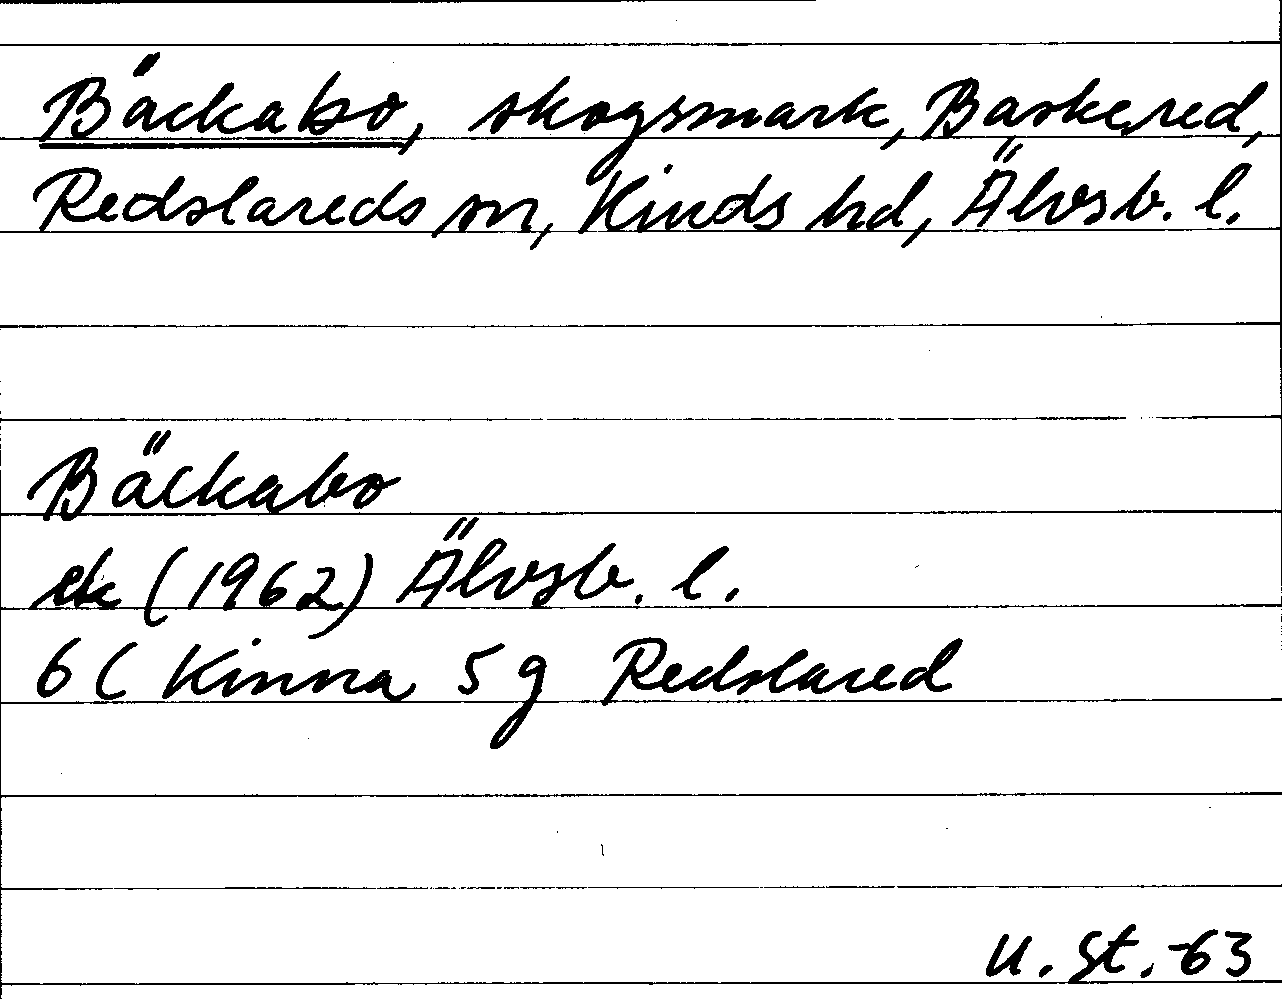 Bäckabo, skogsmark, Baskered,
Redslareds sn, Kinds hd, Älvsb. l.
Bäckabo
ek (1962) Älvsb. l.
6 C Kinna 5 g Redslared
U. St. -63